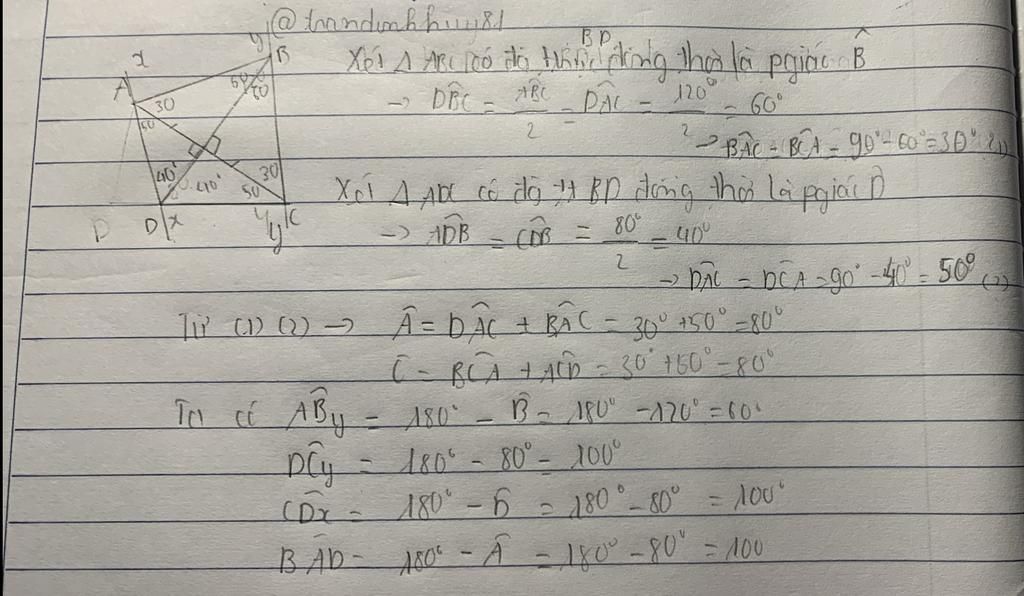 @trandinhhuy81
x
y
B
A
60
60
30
50
40°
40°
30
50
D
D
x
y
C
y
BD
Xét Δ ABC có đg đồng thời là pgiác B̂
→ DB̂C = AB̂C/2 = DÂC = 120°/2 = 60°
→ BÂC = BĈA = 90° - 60° = 30° (1)
Xét Δ ADC có đg tt BD đồng thời là pgiác D̂
→ AD̂B = CD̂B = 80°/2 = 40°
→ DÂC = DĈA = 90° - 40° = 50° (2)
Từ (1) (2) → Â = DÂC + BÂC = 30° + 50° = 80°
Ĉ = BĈA + AĈD = 30° + 50° = 80°
Ta có AB̂y = 180° - B̂ = 180° - 120° = 60°
DĈy = 180° - 80° = 100°
CD̂x = 180° - D̂ = 180° - 80° = 100°
BÂD = 180° - Â = 180° - 80° = 100